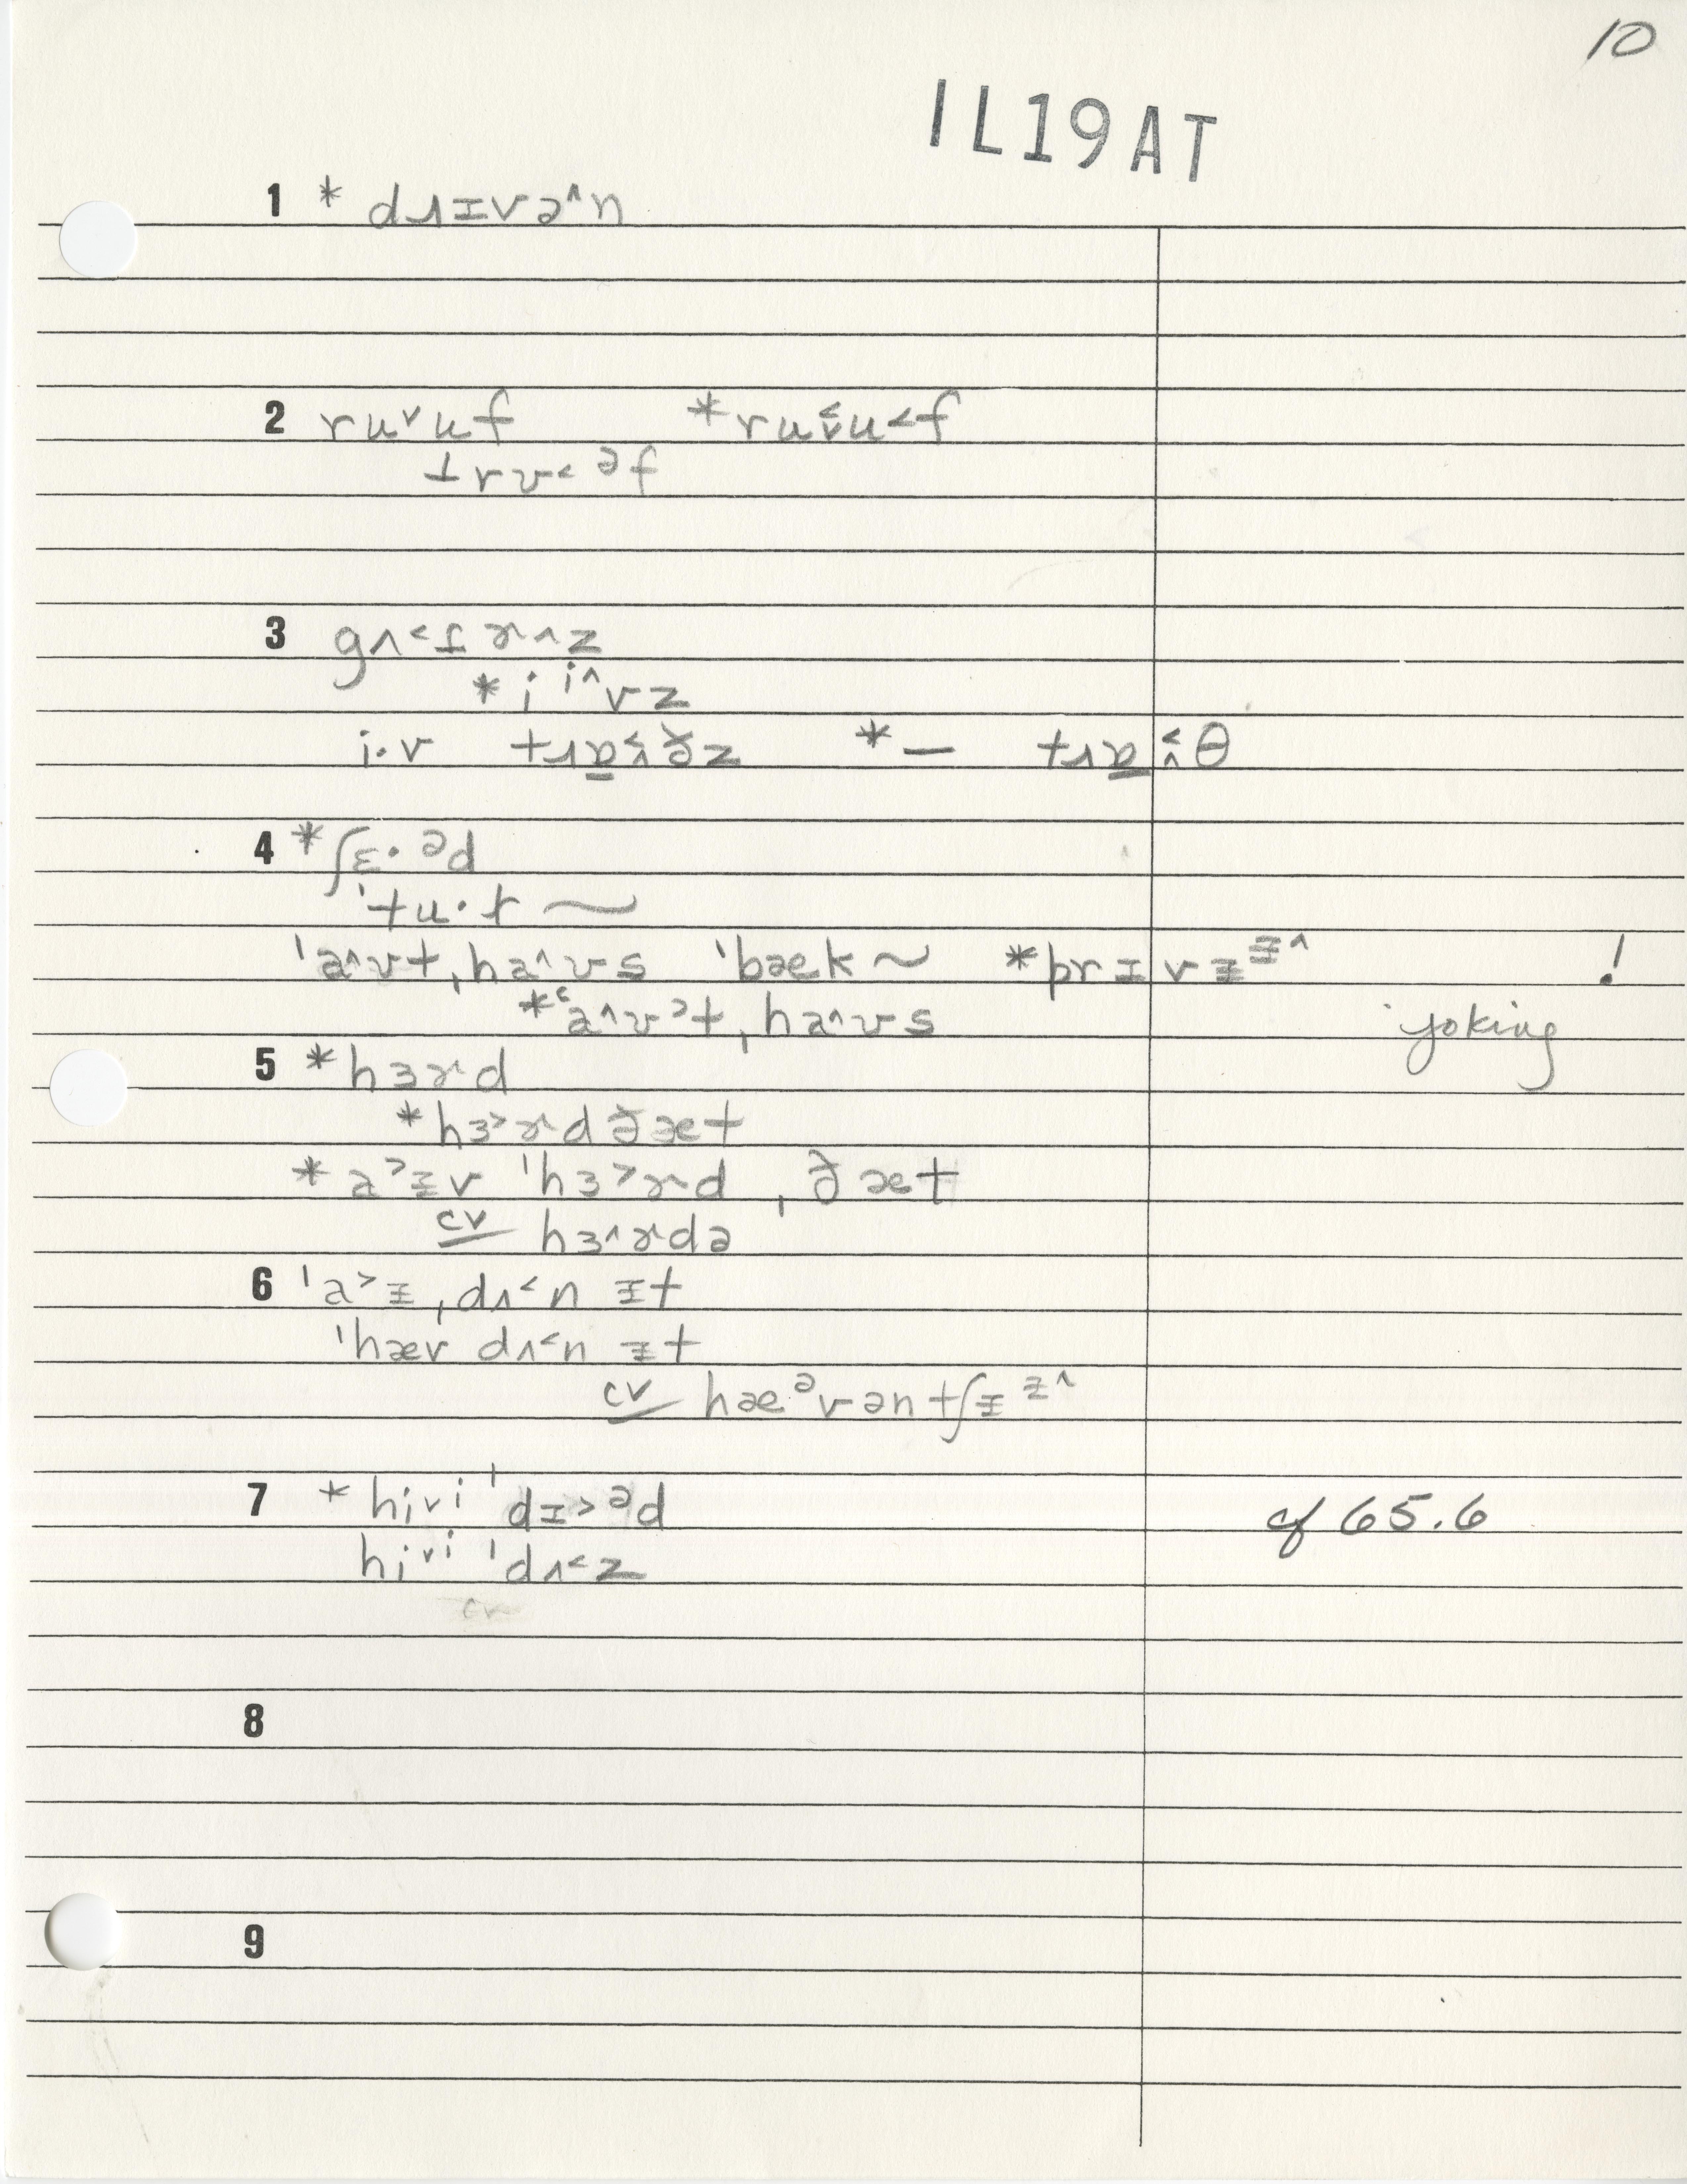 10
IL19AT
1 * dɹɪvə^n
2 ruᵛuf *ru˂ᵥu˂f
rʊ˂ əf
3 gʌ˂ɪɚ^z
* i i^vz
i·v trɒ˂ðz *— trɒ˂θ
4 *ʃɛ·əd
ˈtu·t ~
ˈa^ʊt,ha^ʊs ˈbæk ~ *prɪvɨɨ^ !
*ˈa^ʊət,ha^ʊs joking
5 *hɜɚd
*hɜ˃ɚdðæt
* a˃ɨv ˈhɜ˃ɚd ,ðæt
cv hɜ^ɚdə
6 ˈa˃ɨ,dʌ˂n ɨt
ˈhæv dʌ˂n ɨt
cv hæəvəntʃɨɨ^
7 * hiᵛi ˈdɪ˃əd cf 65.6
hiᵛi ˈdʌ˂z
cv
8
9